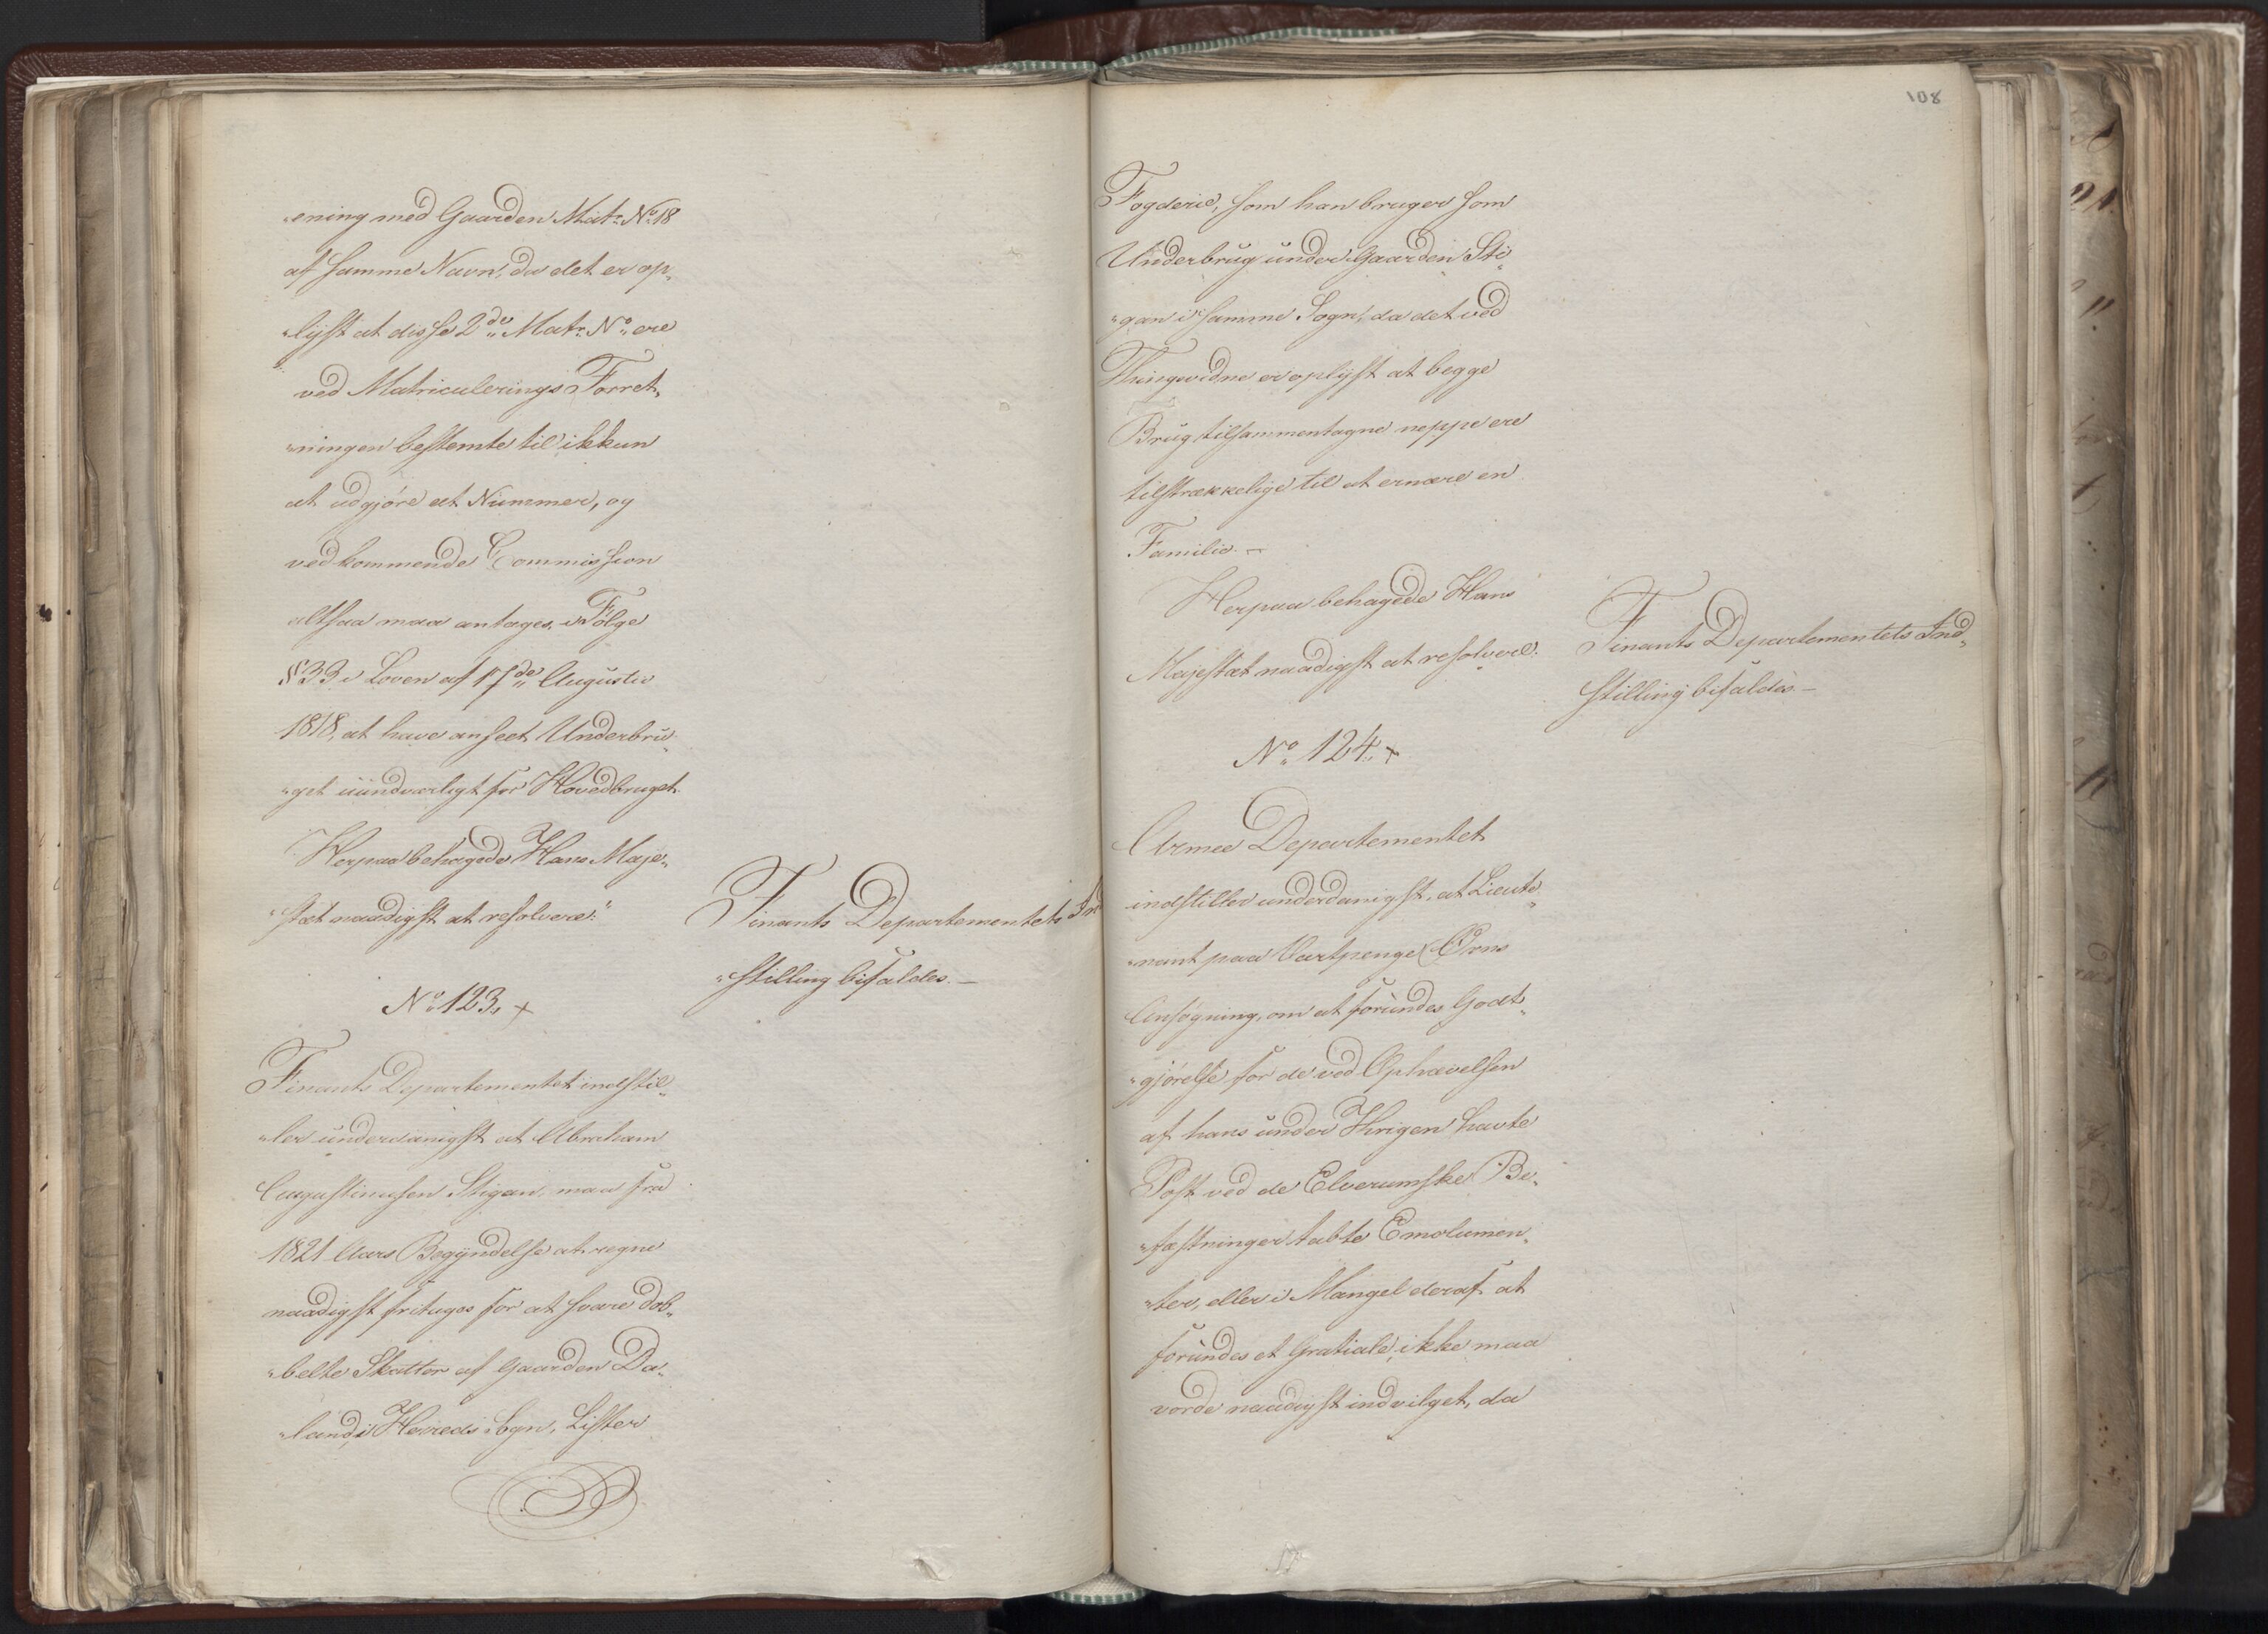 „ening med Gaarden Mat: No 18
af samme Navn, da det er op„
„lyst at disse 2de Mat: No ere
ved Matriculerings Forret„
„ningen bestemte til ikkun
at udgjøre et Nummer, og
vedkommende Commission
altsaa maa antages, i Følge
§33 i Loven af 17de Augusti
1818, at have anseet Underbru„
„get uundværligt for Hovedbruget.
Herpaa behagede Hans Maje„
„stæt naadigst at resolvere:"
Finants Departementets Ind
„stilling bifaldes. —
No 123. +
Finants Departementet indstil„
„ler underdanigst at Abraham
Augustinusen Stigan, maa fra
1821 Aars Begyndelse at regne
naadigst fritages for at svare dob„
„belte Skatter af Gaarden Da„
„land i Herreds Sogn, Lister
108
Fogderie, som han bruger som
Underbrug under Gaarden Sti„
„gan i samme Sogn, da det ved
Thingsvidne er oplyst at begge
Brug tilsammentagne neppe ere
tilstrækkelige til at ernære en
Familie. —
Herpaa behagede Hans
Majestæt naadigst at resolvere:
Finants Departementets Ind„
stilling bifaldes. —
No 124. +
Armee Departementet
indstiller underdanigst, at Lieute„
„nant paa Vartpenge Orns
Ansøgning, om at forundes Godt„
„gjørelse for de ved Ophævelsen
af hans under Krigen havte
Post ved de Elverumske Be„
„fæstninger tabte Emolumen„
„ter, eller i Mangel deraf at
forundes et Gratiale, ikke maa
vorde naadigst indvilget, da